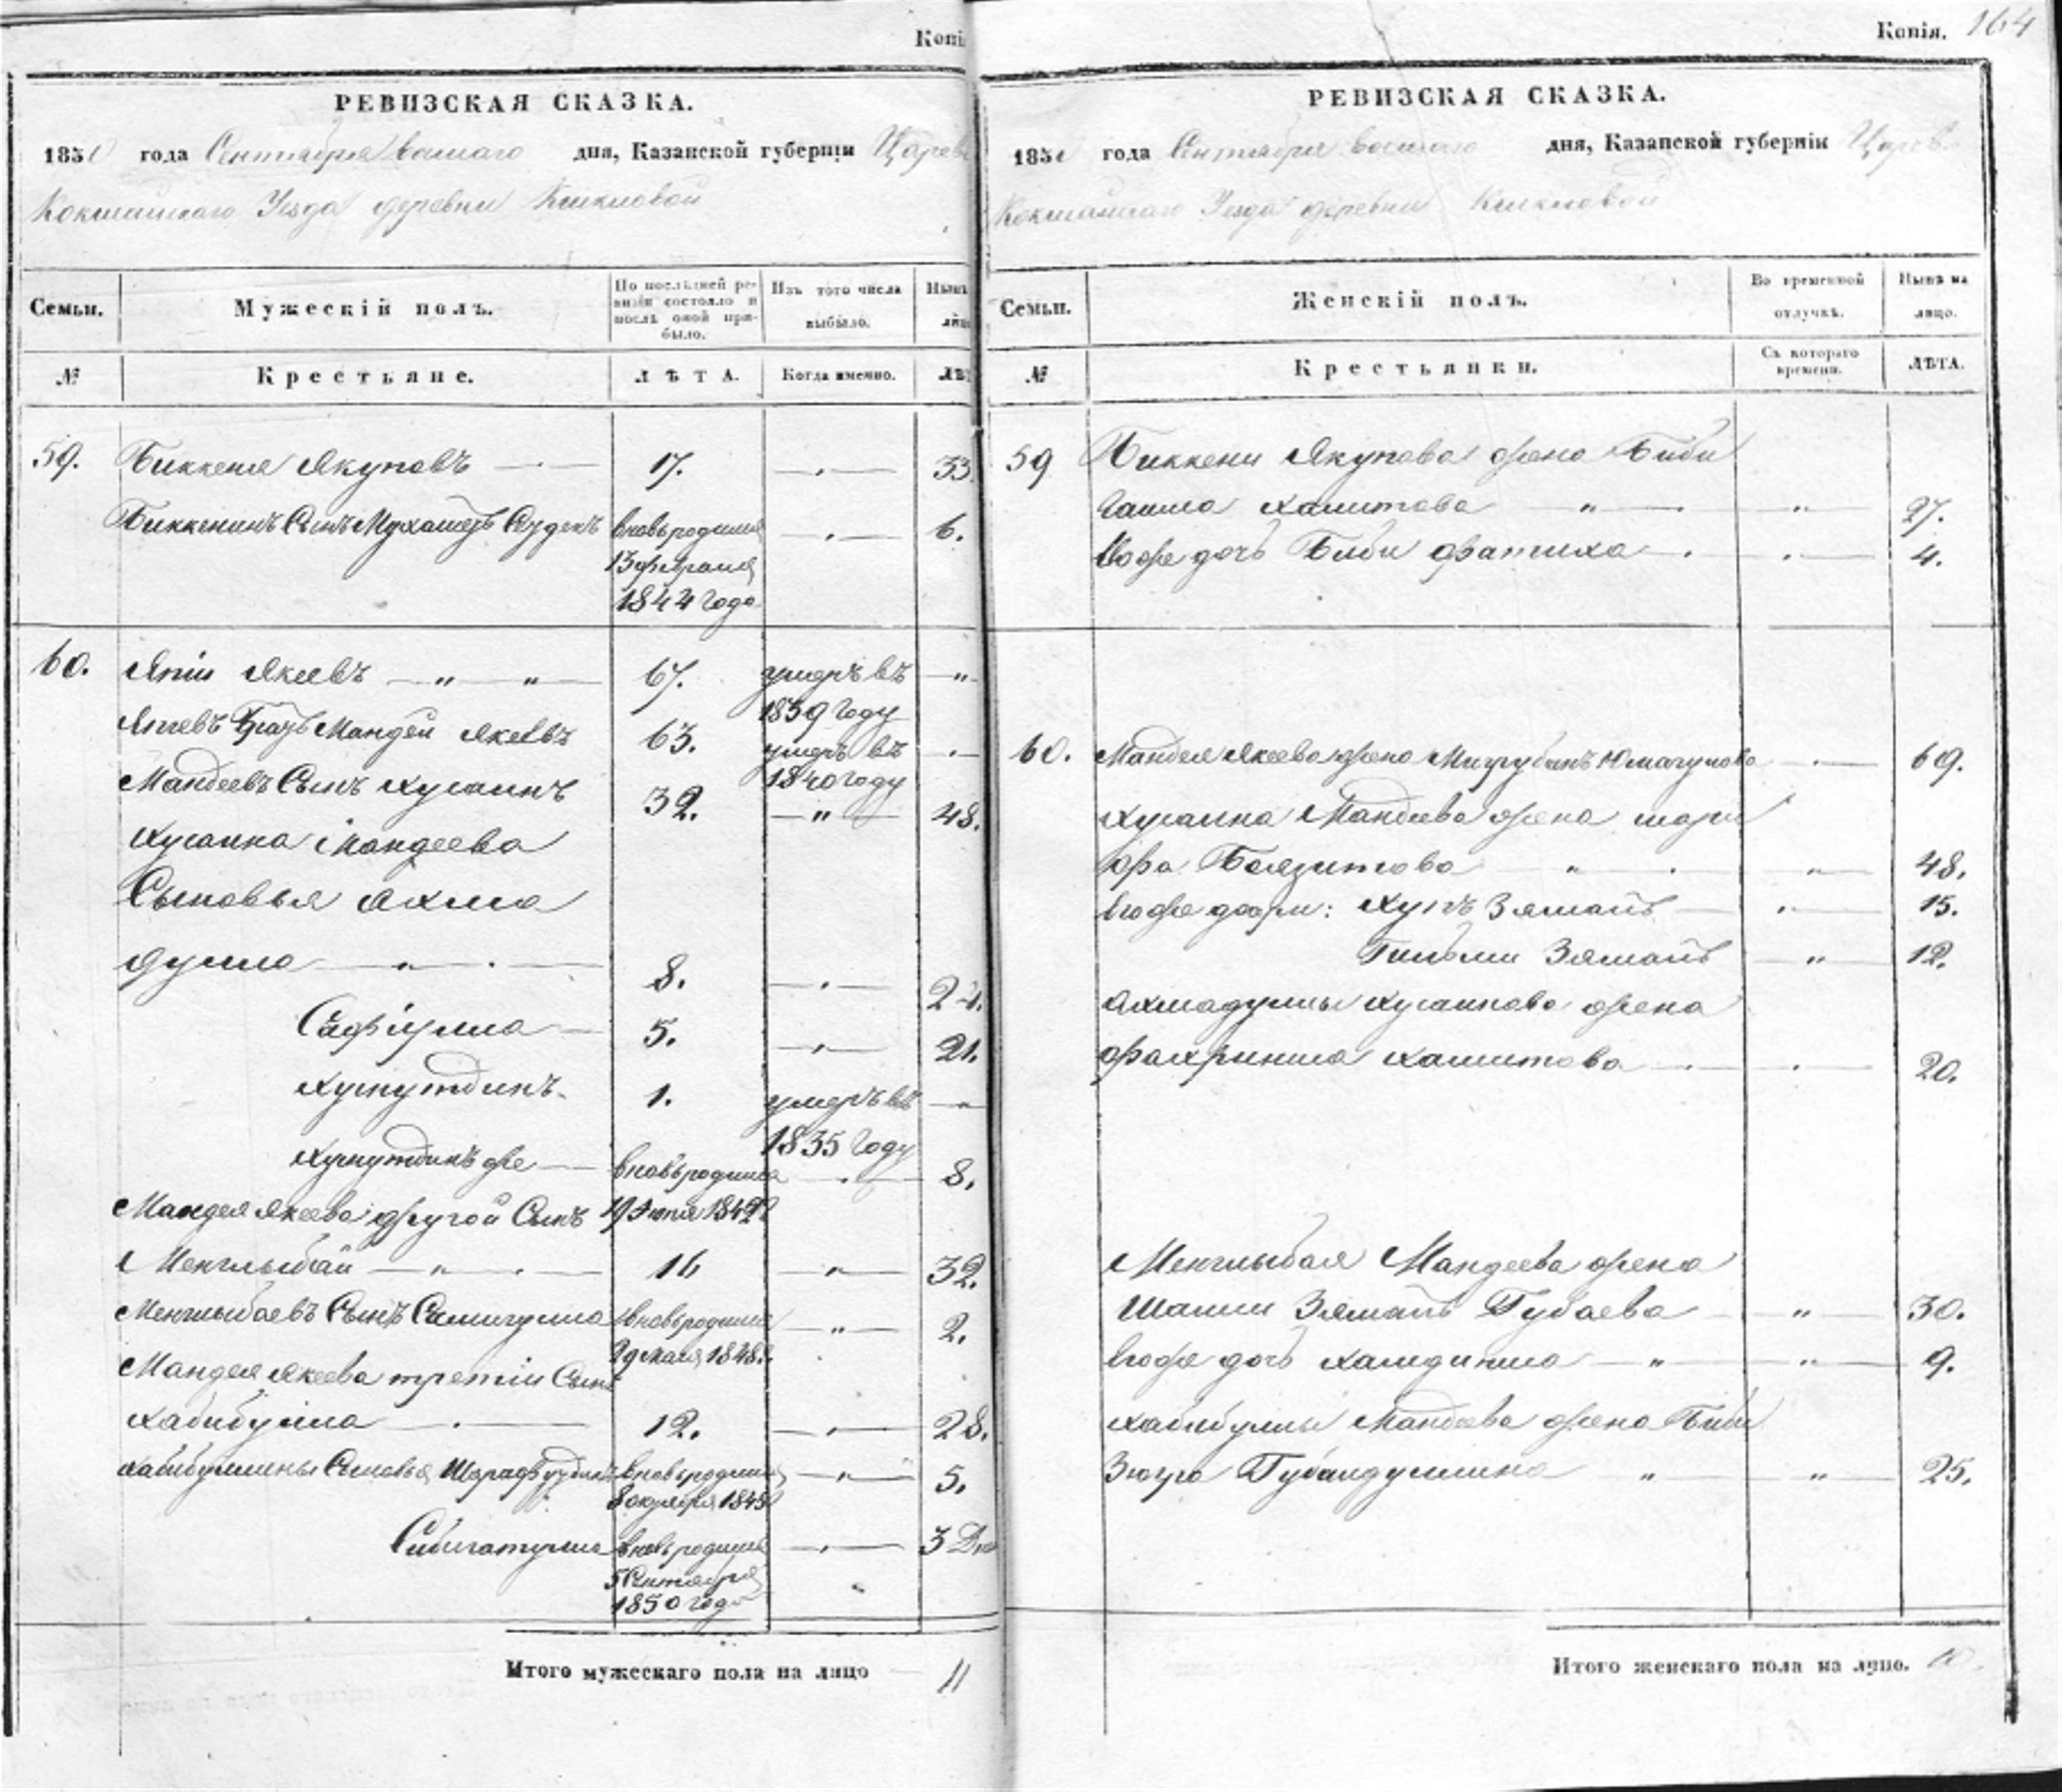 Копія
РЕВИЗСКАЯ СКАЗКА.
1850 года Сентября восмаго дня, Казанской губерніи Царево
Кокшайскаго Уезда деревни
Семьи. Мужескій полъ. По послѣдней ревизіи состояло и послѣ оной прибыло. Изъ того числа выбыло. Нынѣ
№ Крестьяне. ЛѢТА. Когда именно. ЛѢТ
59. Биккеня Якуповъ 17. 33.
Биккенинъ Сынъ Мухаметъ вновь родился 6.
13 февраля
1844 года
60. Япій Якеевъ „ „ 67. умеръ въ „
1839 году
Япіевъ братъ Мандей Якеевъ 63. умеръ въ
1840 году
Мандеевъ Сынъ Хусаинъ 32. „ 48.
Хусаина Мандеева
Сыновья Ахма
дулла „ 8. 24.
Сафіулла 5. 21.
Хуснутдинъ 1. умеръ въ
1835 году
Хуснутдинъ же вновь родился 8.
Мандея Якеева другой Сынъ 19 Іюня 1842
Менглыбай „ 16 „ 32.
Менглыбаевъ Сынъ Самигулла вновь родился „ 2.
29 мая 1848
Мандея Якеева третій Сынъ
Хабибулла 12. „ 28.
Хабибуллины Сыновья Шарафутдинъ вновь родился „ 5.
8 октября 1845
Сибигатулла вновь родился 3 Дня
5 Сентября
1850 года
Итого мужескаго пола на лицо 11
Копія. 164
РЕВИЗСКАЯ СКАЗКА.
1850 года Сентября восмаго дня, Казанской губерніи Царево
Кокшайскаго Уезда деревни
Семьи. Женскій полъ. Во временной отлучкѣ. Нынѣ на лицо.
№ Крестьянки. Съ котораго времени. ЛѢТА.
59 Биккени Якупова жена Биби
Халитова „ „ 27.
Ево же дочь Биби Фатиха 4.
60. Мандея Якеева жена Юмагулова 69.
Хусаина Мандеева жена Шари
фа Баязитова „ „ 48.
Ево же дочери: Хупъ Зямалъ „ 15.
Гильми Зямалъ „ 12.
Ахмадуллы Хусаинова жена
Халитова 20.
Менглыбая Мандеева жена
Шамси Зямалъ Губаева „ 30.
Ево же дочь „ „ 9.
Хабибуллы Мандеева жена Биби
Зюгра Губайдуллина „ „ 25.
Итого женскаго пола на лицо. 10